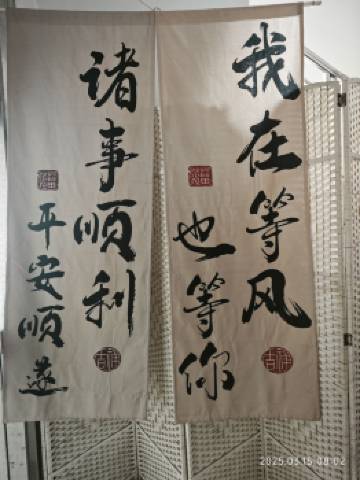 我在等风
也等你
诸事顺利
平安顺遂
吉祥
吉祥
2025.03.15 08:02